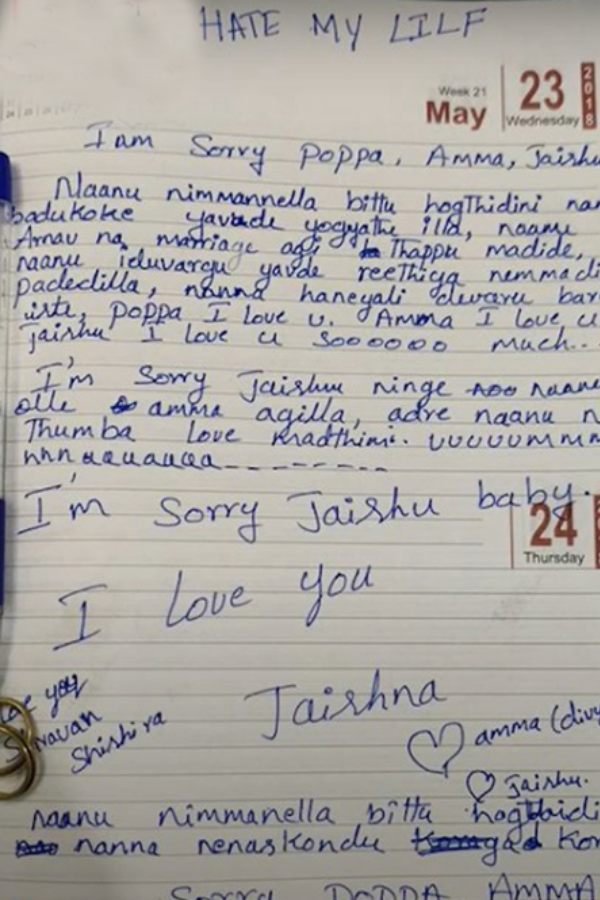 HATE MY LILF
Week 21
May 23 2018
Wednesday
I am Sorry Poppa, Amma, Jaishu
Naanu nimmannella bittu hogThidini nan
badukoke yavude yogyathe illa, naanu
Arnav na marriage agi Thappu madide,
naanu iduvargu yavde reethiya nemmadi
padedilla, nanna haneyali devaru bar
iste, Poppa I love u. Amma I love u
Jaishu I love u soooooo much..
I'm Sorry Jaishu ninge naanu
olle amma agilla, adre naanu n
Thumba love madthini. uuuuummm
nnnaauaauaa---------
I'm Sorry Jaishu baby.
24
Thursday
I love you
Jaishna
you
Shravan
Shishira
amma (divy
Jaishu.
naanu nimmanella bittu hogthidi
nanna nenaskondu
Sorry POPPA AMMA